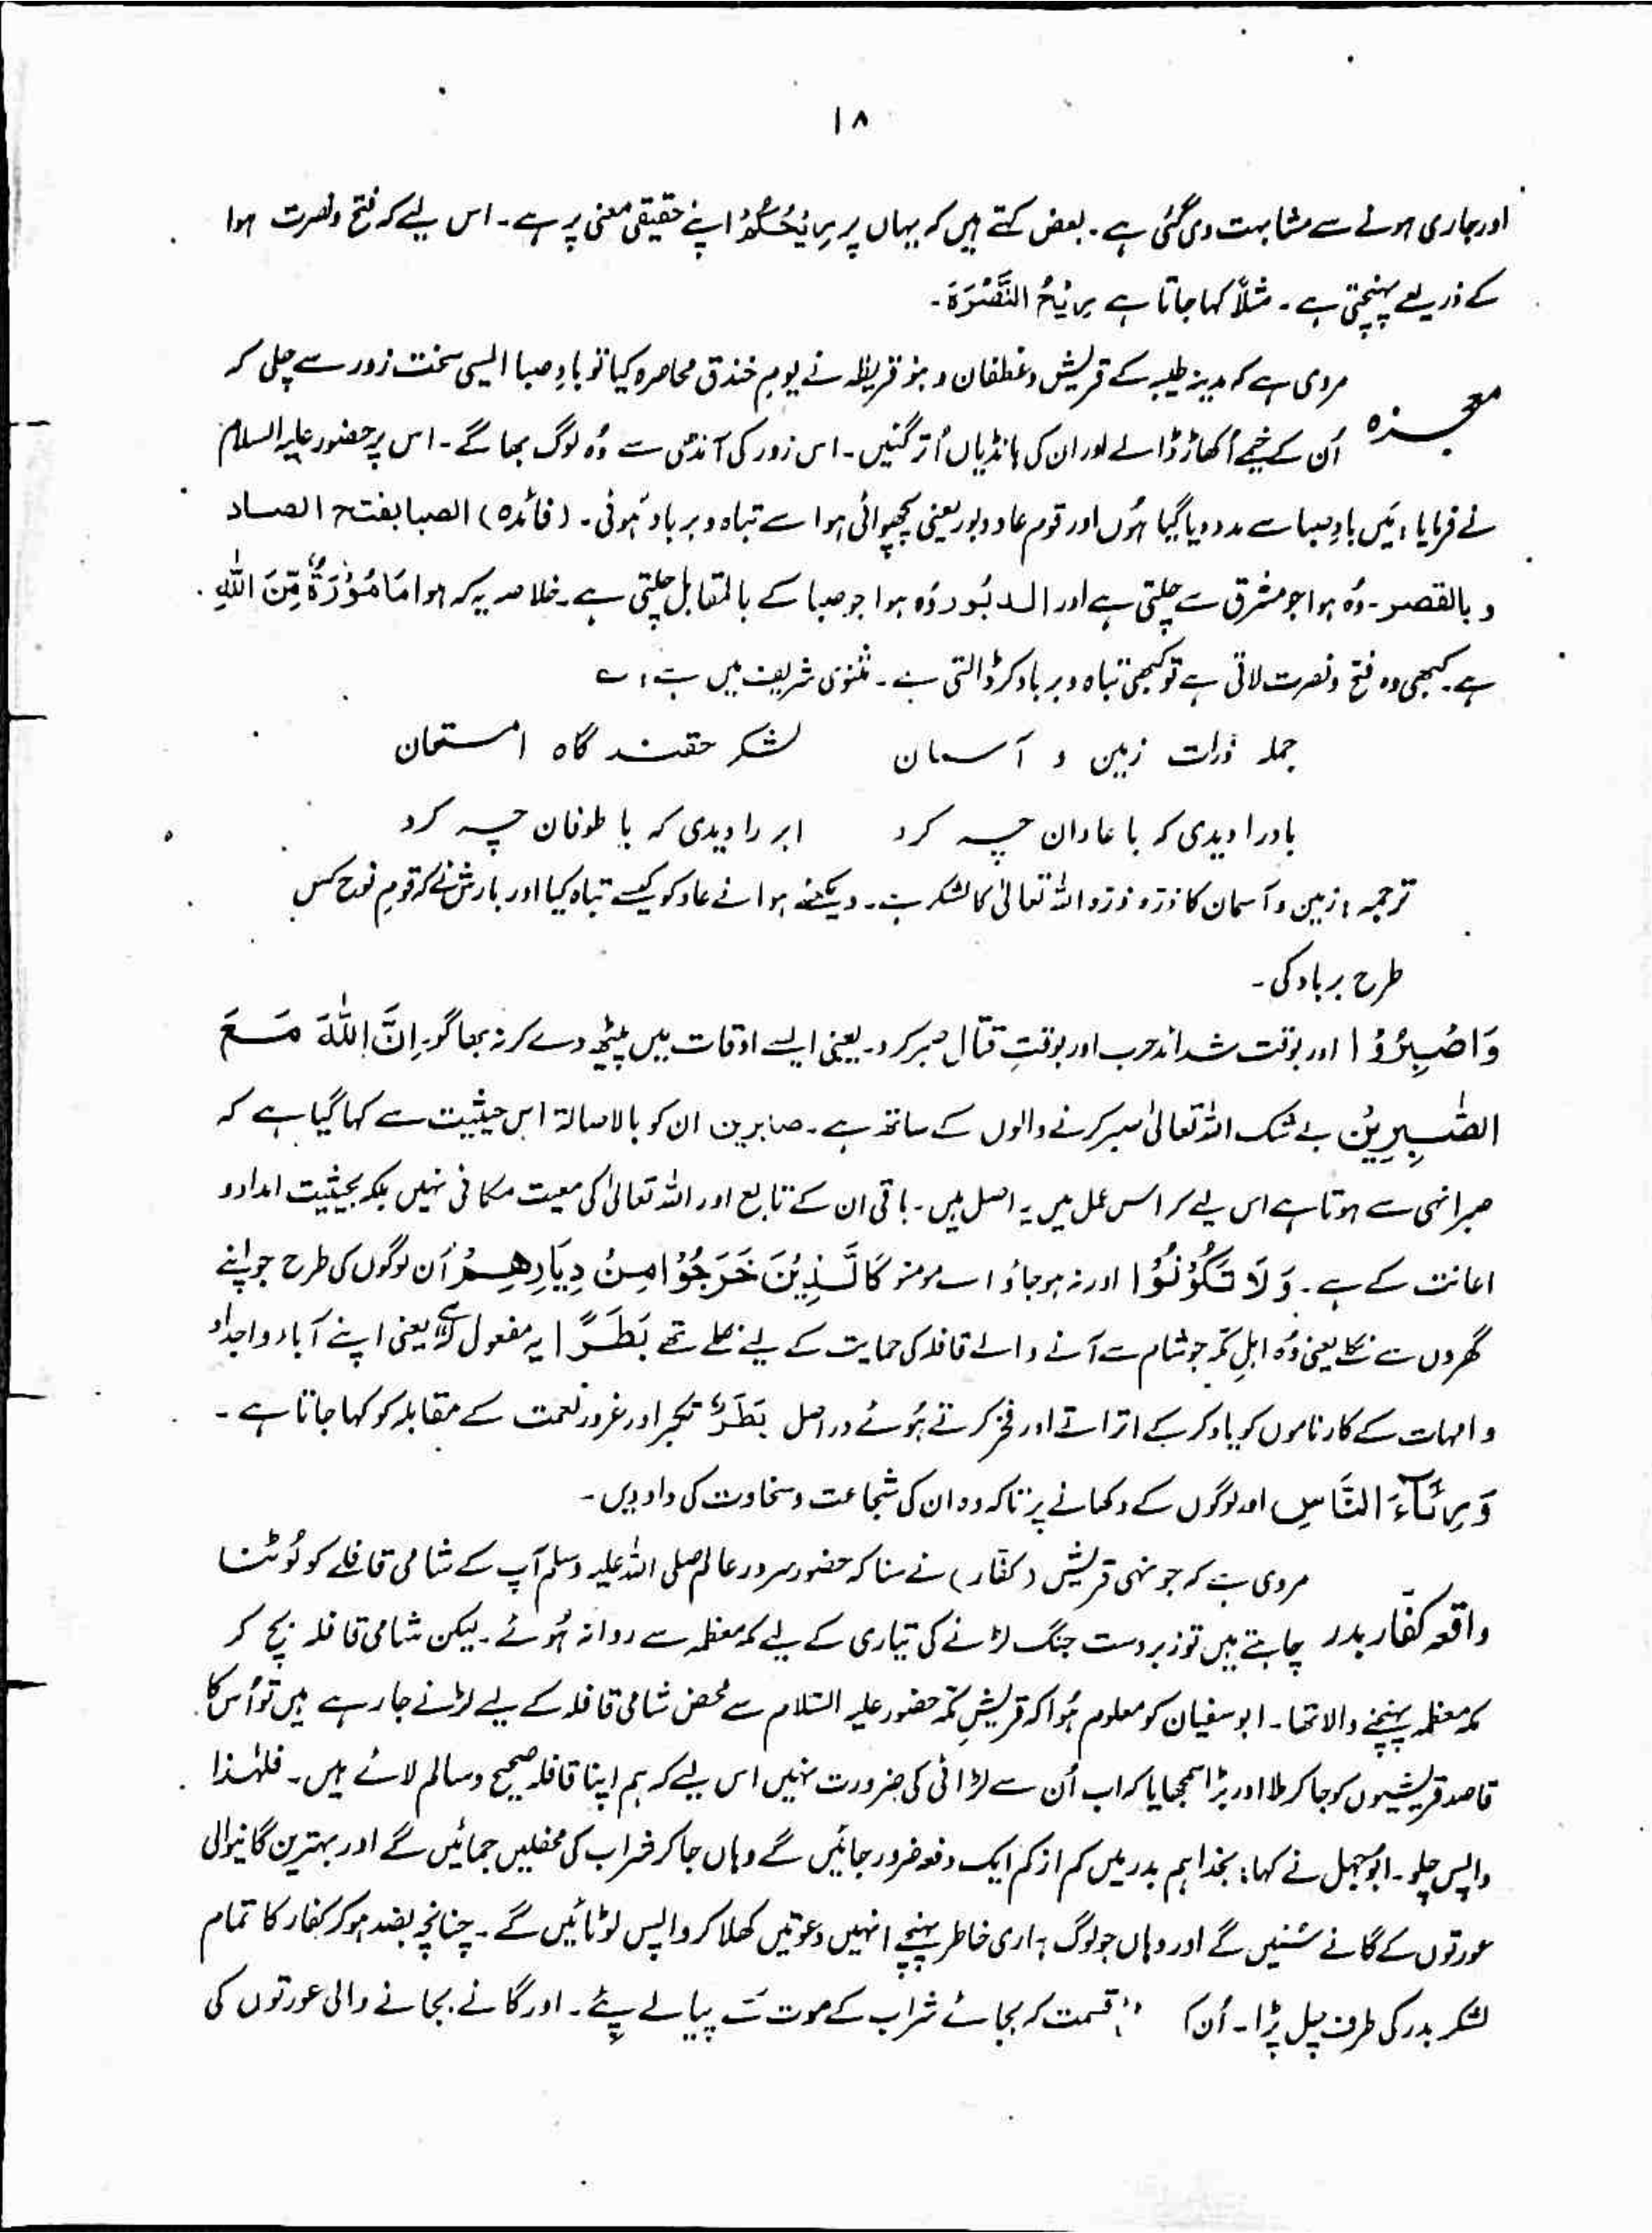 ۱۸
اور جاری ہونے سے مشابہت دی گئی ہے۔ بعض کہتے ہیں کہ یہاں پر رِیْحُکُمْ اپنے حقیقی معنی پر ہے۔ اس لیے کہ فتح و نصرت ہوا
کے ذریعے پہنچتی ہے۔ مثلاً کہا جاتا ہے رِیْحُ النَّصْرَۃِ۔
مروی ہے کہ مدینہ طیبہ کے قریش و غطفان و بنو قریظہ نے یومِ خندق محاصرہ کیا تو بادِ صبا ایسی سخت زور سے چلی کہ
معجزہ اُن کے خیمے اُکھاڑ ڈالے اور ان کی ہانڈیاں اُتر گئیں۔ اس زور کی آندھی سے وُہ لوگ بھاگے۔ اس پر حضور علیہ السلام
نے فرمایا: مَیں بادِ صبا سے مدد دیا گیا ہُوں اور قوم عاد دبور یعنی پچھوائی ہوا سے تباہ و برباد ہُوئی۔ (فائدہ) الصبا بفتح الصاد
و بالقصر۔ وُہ ہوا جو مشرق سے چلتی ہے اور الدبُور وُہ ہوا جو صبا کے بالمقابل چلتی ہے۔ خلاصہ یہ کہ ہوا مَامُوْرَۃٌ مِّنَ اللّٰہِ
ہے۔ کبھی وہ فتح و نصرت لاتی ہے تو کبھی تباہ و برباد کر ڈالتی ہے۔ مثنوی شریف میں ہے: ؎
جملہ ذرات زمین و آسمان لشکر حقند گاہ امتحان
باد را دیدی کہ با عادان چہ کرد ابر را دیدی کہ با طوفان چہ کرد
ترجمہ: زمین و آسمان کا ذرّہ ذرّہ اللہ تعالیٰ کا لشکر ہے۔ دیکھئے ہوا نے عاد کو کیسے تباہ کیا اور بارش نے کہ قومِ نوح کس
طرح برباد کی۔
وَاصْبِرُوْا اور بوقت شدائد حرب اور بوقتِ قتال صبر کرو۔ یعنی ایسے اوقات میں پیٹھ دے کر نہ بھاگو۔ اِنَّ اللّٰہَ مَعَ
الصّٰبِرِیْنَ بے شک اللہ تعالیٰ صبر کرنے والوں کے ساتھ ہے۔ صابرین ان کو بالاصالۃ اس حیثیت سے کہا گیا ہے کہ
صبر انہی سے ہوتا ہے اس لیے کہ اس عمل میں یہ اصل ہیں۔ باقی ان کے تابع اور اللہ تعالیٰ کی معیت مکانی نہیں بلکہ بحیثیت امداد و
اعانت کے ہے۔ وَلَا تَکُوْنُوْا اور نہ ہو جاؤ اے مومنو کَالَّذِیْنَ خَرَجُوْا مِنْ دِیَارِھِمْ اُن لوگوں کی طرح جو اپنے
گھروں سے نکلے یعنی وُہ اہلِ مکّہ جو شام سے آنے والے قافلہ کی حمایت کے لیے نکلے تھے بَطَرًا یہ مفعول لہٗ ہے یعنی اپنے آباء و اجداد
و امہات کے کارناموں کو یاد کر کے اتراتے اور فخر کرتے ہُوئے دراصل بَطَرٌ تکبر اور غرور نعمت کے مقابلہ کو کہا جاتا ہے۔
وَرِئَآءَ النَّاسِ اور لوگوں کے دکھانے پر تاکہ وہ ان کی شجاعت و سخاوت کی داد دیں۔
مروی ہے کہ جونہی قریش (کفّار) نے سنا کہ حضور سرور عالم صلی اللہ علیہ وسلم آپ کے شامی قافلے کو لُوٹنا
واقعہ کفّار بدر چاہتے ہیں تو زبردست جنگ لڑانے کی تیاری کے لیے مکہ معظمہ سے روانہ ہُوئے۔ لیکن شامی قافلہ بچ کر
مکہ معظمہ پہنچنے والا تھا۔ ابوسفیان کو معلوم ہُوا کہ قریشِ مکّہ حضور علیہ السّلام سے محض شامی قافلہ کے لیے لڑنے جا رہے ہیں تو اُس کا
قاصد قریشیوں کو جا کر ملا اور بڑا سمجھایا کہ اب اُن سے لڑائی کی ضرورت نہیں اس لیے کہ ہم اپنا قافلہ صحیح و سالم لائے ہیں۔ فلہٰذا
واپس چلو۔ ابوجہل نے کہا: بخدا ہم بدر میں کم از کم ایک دفعہ ضرور جائیں گے وہاں جا کر شراب کی محفلیں جمائیں گے اور بہترین گانیوالی
عورتوں کے گانے سُنیں گے اور وہاں جو لوگ ہماری خاطر پہنچے انہیں دعوتیں کھلا کر واپس لوٹائیں گے۔ چنانچہ بضد ہو کر کفار کا تمام
لشکر بدر کی طرف چل پڑا۔ اُن کی قسمت کہ بجائے شراب کے موت کے پیالے پیئے۔ اور گانے بجانے والی عورتوں کی